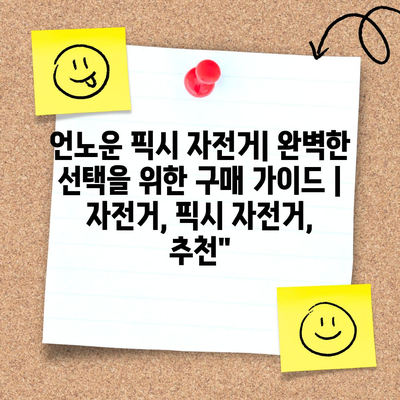 언노운 픽시 자전거| 완벽한
선택을 위한 구매 가이드 |
자전거, 픽시 자전거,
추천"